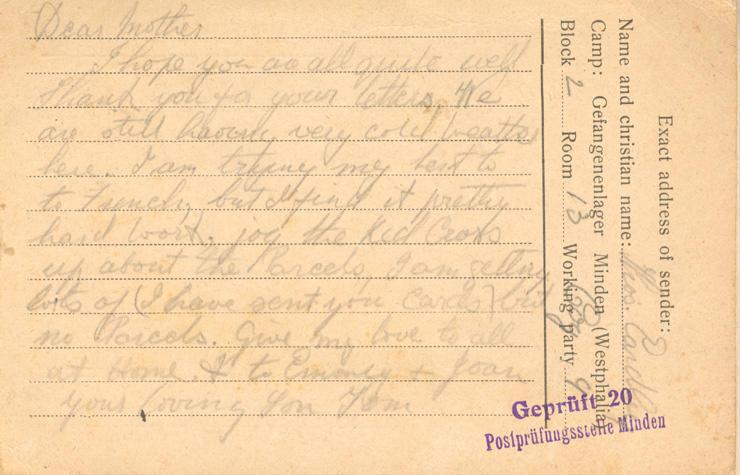 Dear Mother
I hope you are all quite well
Thank you for your letters, We
are still having very cold weather
here. I am trying my best to
to French, but I find it pretty
hard work, jog the Red Cross
up about the Parcels, I am getting
lots of (I have sent you cards) but
no Parcels. Give my love to all
at home. & to + Joan
your loving Son Tom
Exact address of sender:
Name and christian name:
Camp: Gefangenenlager Minden (Westphalia)
Block 2 Room 13 Working party
Geprüft 20
Postprüfungsstelle Minden